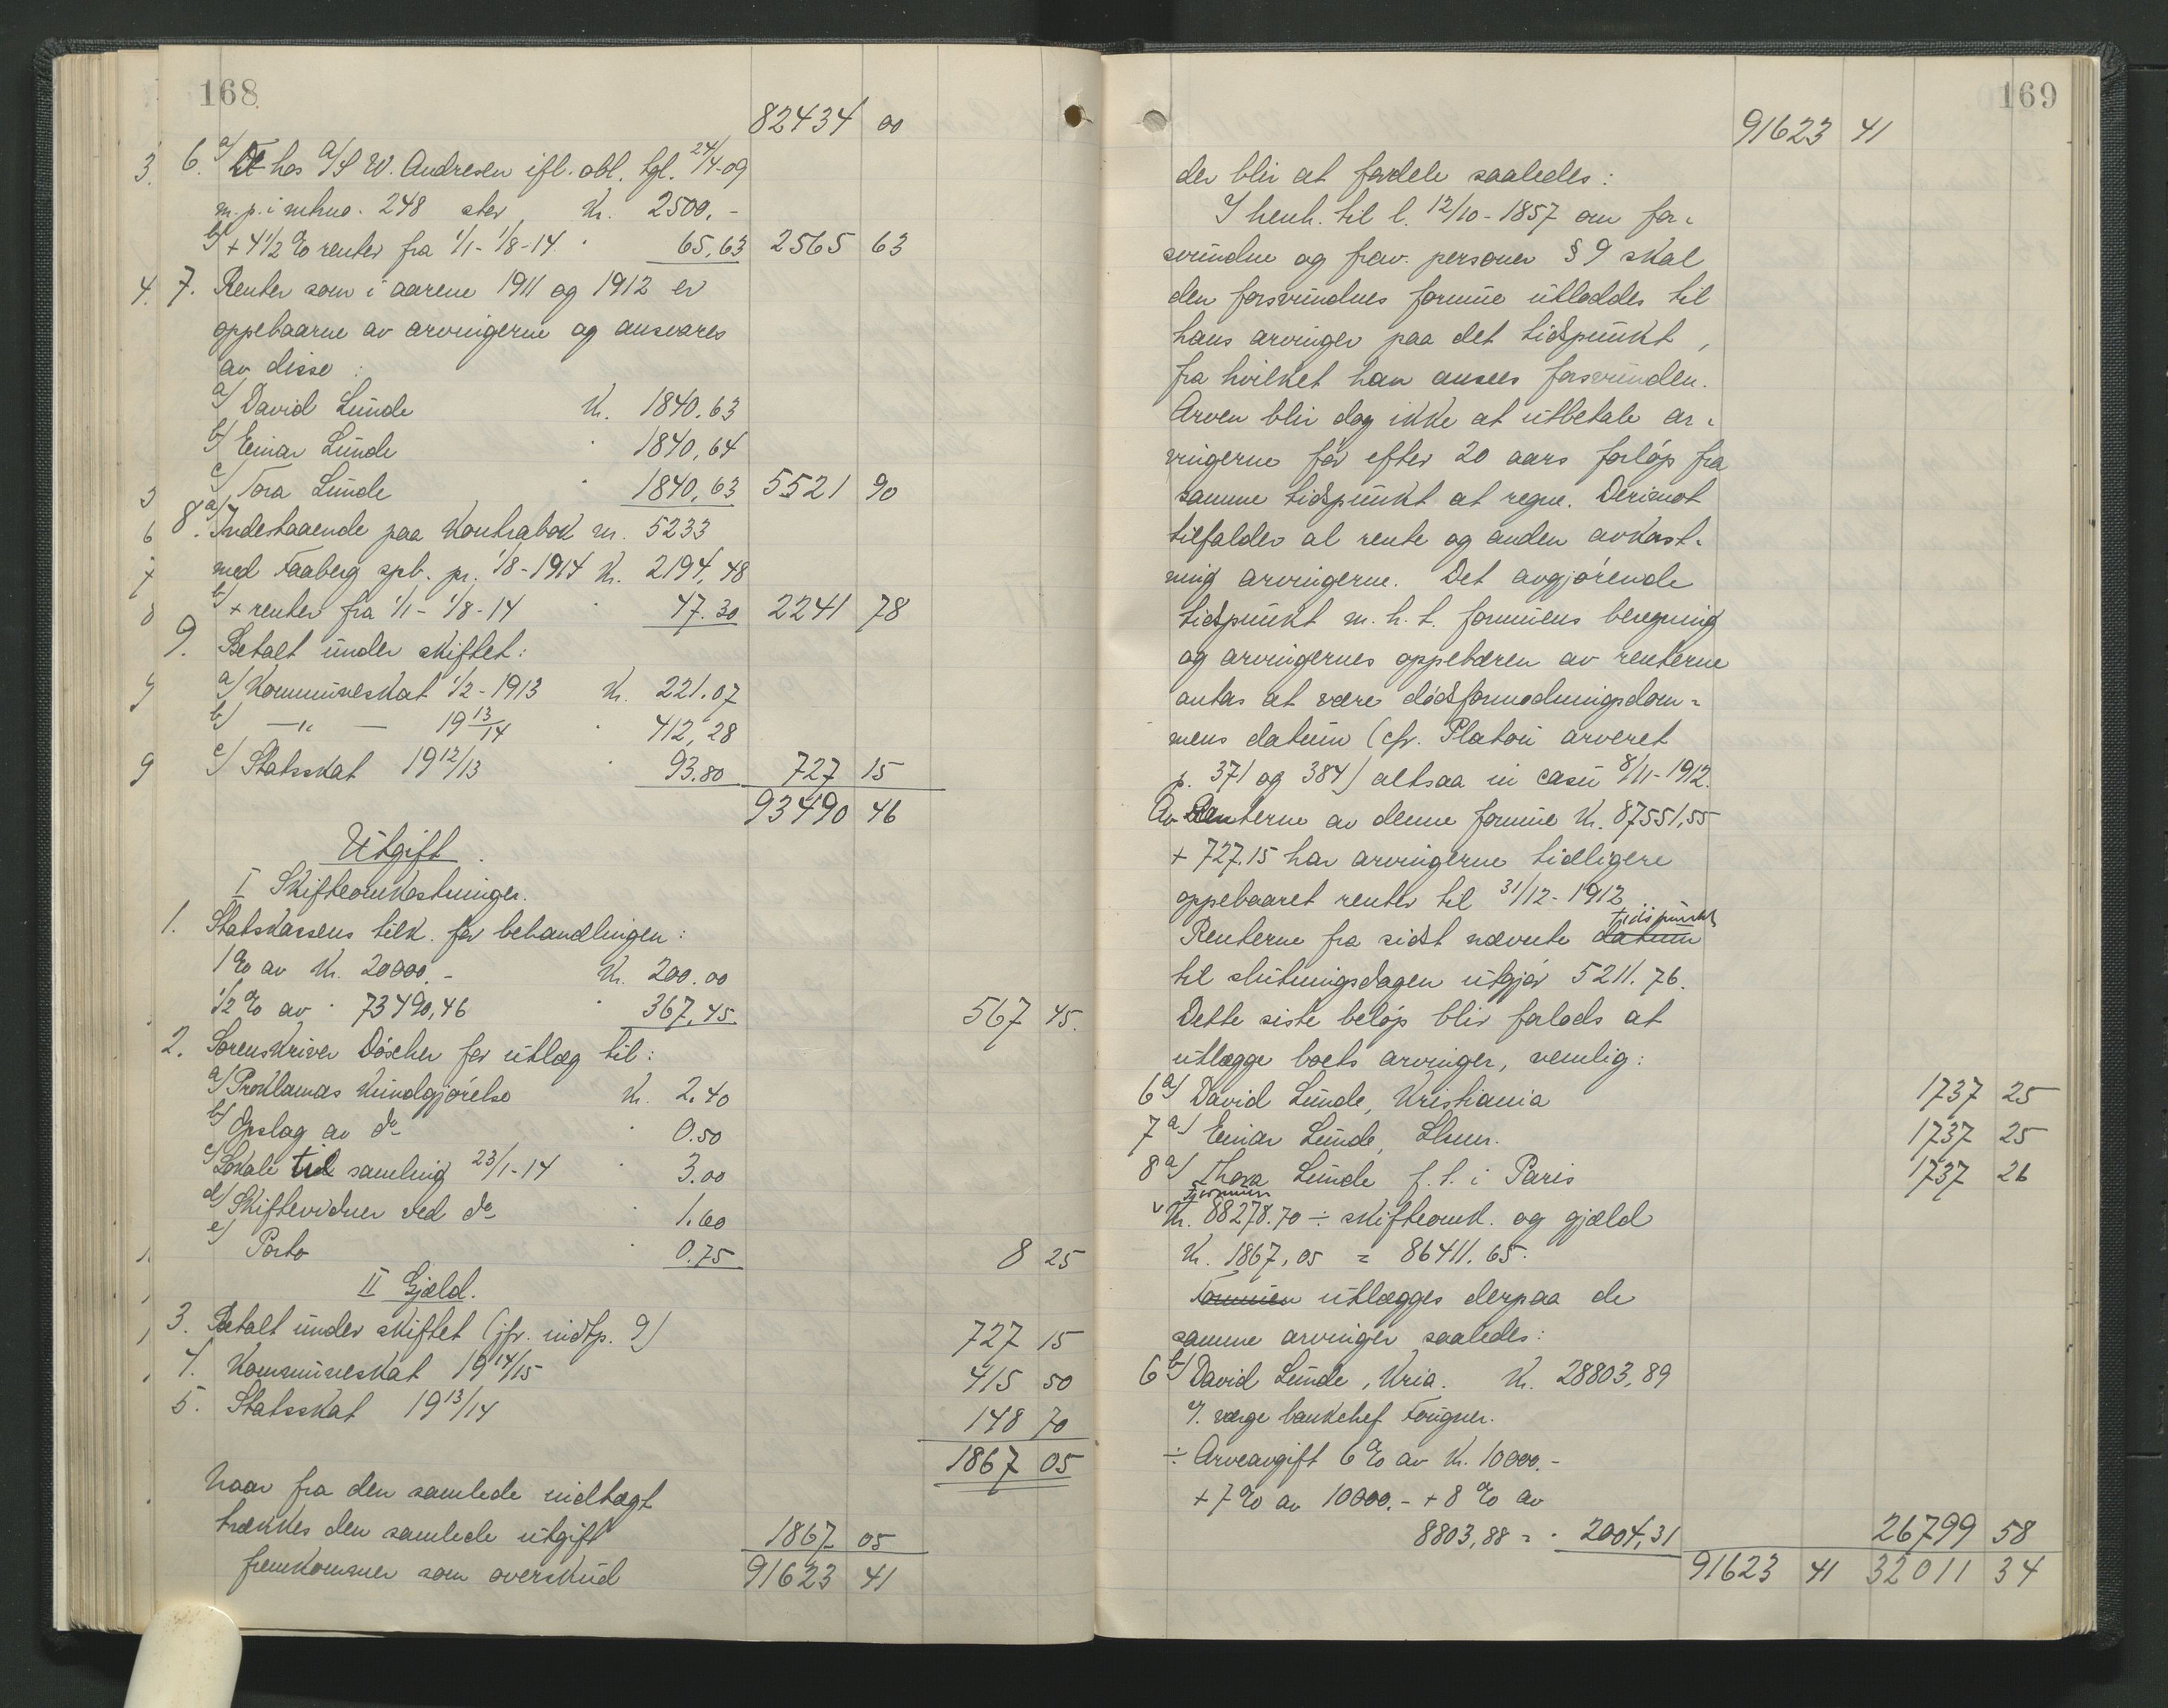 168
82434 00
6. a) Do hos A/S W. Andresen ifl. obl. tgl. 24/4-09
m. p. i mtrno. 248 stor, Kr. 2500.-
b) + 4 1/2 % renter fra 1/1 - 1/8-14 " 65,63 2565 63
7. Renter som i aarene 1911 og 1912 er
oppebaarne av arvingerne og ansvares
av disse:
a) David Lunde Kr. 1840,63
b) Einar Lunde " 1840,64
c) Tora Lunde " 1840,63 5521 90
8. a) Indestaaende paa Kontrabok nr. 5233
med Faaberg spb. pr. 1/8-1914 Kr. 2194,48
b) + renter fra 1/1 - 1/8-14 " 47.30 2241 78
9. Betalt under skiftet:
a) Kommuneskat 1/2-1913 Kr. 221.07
b) —"— 1913/14 " 412,28
c) Statsskat 1912/13 " 93.80 727 15
93490 46
Utgift.
I Skifteomkostninger.
1. Statskassens tilk. for behandlingen:
1 % av Kr. 20000.- Kr. 200.00
1/2 % av " 73490,46 " 367,45 567 45.
2. Sorenskriver Döscher for utlæg til:
a) Proklamas kundgjørelse Kr. 2.40
b) Opslag av do " 0.50
c) Lokale til samling 23/1-14 " 3.00
d) Skiftevidner ved do " 1.60
e) Porto " 0.75 8 25
II Gjæld.
3. Betalt under skiftet (jfr. indtp. 9) 727 15
4. Kommuneskat 1914/15 415 50
5. Statsskat 1913/14 148 70
1867 05
Naar fra den samlede indtægt
trækkes den samlede utgift 1867 05
fremkommer som overskud 91623 41
169
91623 41
der blir at fordele saaledes:
I henh. til l. 12/10-1857 om for-
svundne og frav. personer § 9 skal
den forsvundnes formue utloddes til
hans arvinger paa det tidspunkt,
fra hvilket han ansees forsvunden.
Arven blir dog ikke at utbetale ar-
vingerne før efter 20 aars forløp fra
samme tidspunkt at regne. Derimot
tilfalder al rente og anden avkast-
ning arvingerne. Det avgjørende
tidspunkt m. h. t. formuens beregning
og arvingernes oppebæren av renterne
antas at være dødsformodningsdom-
mens datum (cfr. Platou arveret
p. 371 og 384) altsaa in casu 8/11-1912.
Av Renterne av denne formue Kr. 87551,55
+ 727.15 har arvingerne tidligere
oppebaaret renter til 31/12-1912
tidspunkt
Renterne fra sidst nævnte datum
til slutningsdagen utgjør 5211.76.
Dette siste beløp blir forlods at
utlægge boets arvinger, nemlig:
6 a) David Lunde, Kristiania 1737 25
7 a) Einar Lunde, Lhmr. 1737 25
8 a) Thora Lunde f. t. i Paris 1737 26
Formuen
Kr. 88278.70 ÷ skifteomk. og gjæld
Kr. 1867,05 = 86411.65.
Formuen utlægges derpaa de
samme arvinger saaledes:
6 b) David Lunde, Kria. Kr. 28803,89
v. værge bankchef Fougner.
÷ Arveavgift 6 % av Kr. 10000.-
+ 7 % av 10000.- + 8 % av
8803,88 = " 2004,31 26799 58
91623 41 32011 34